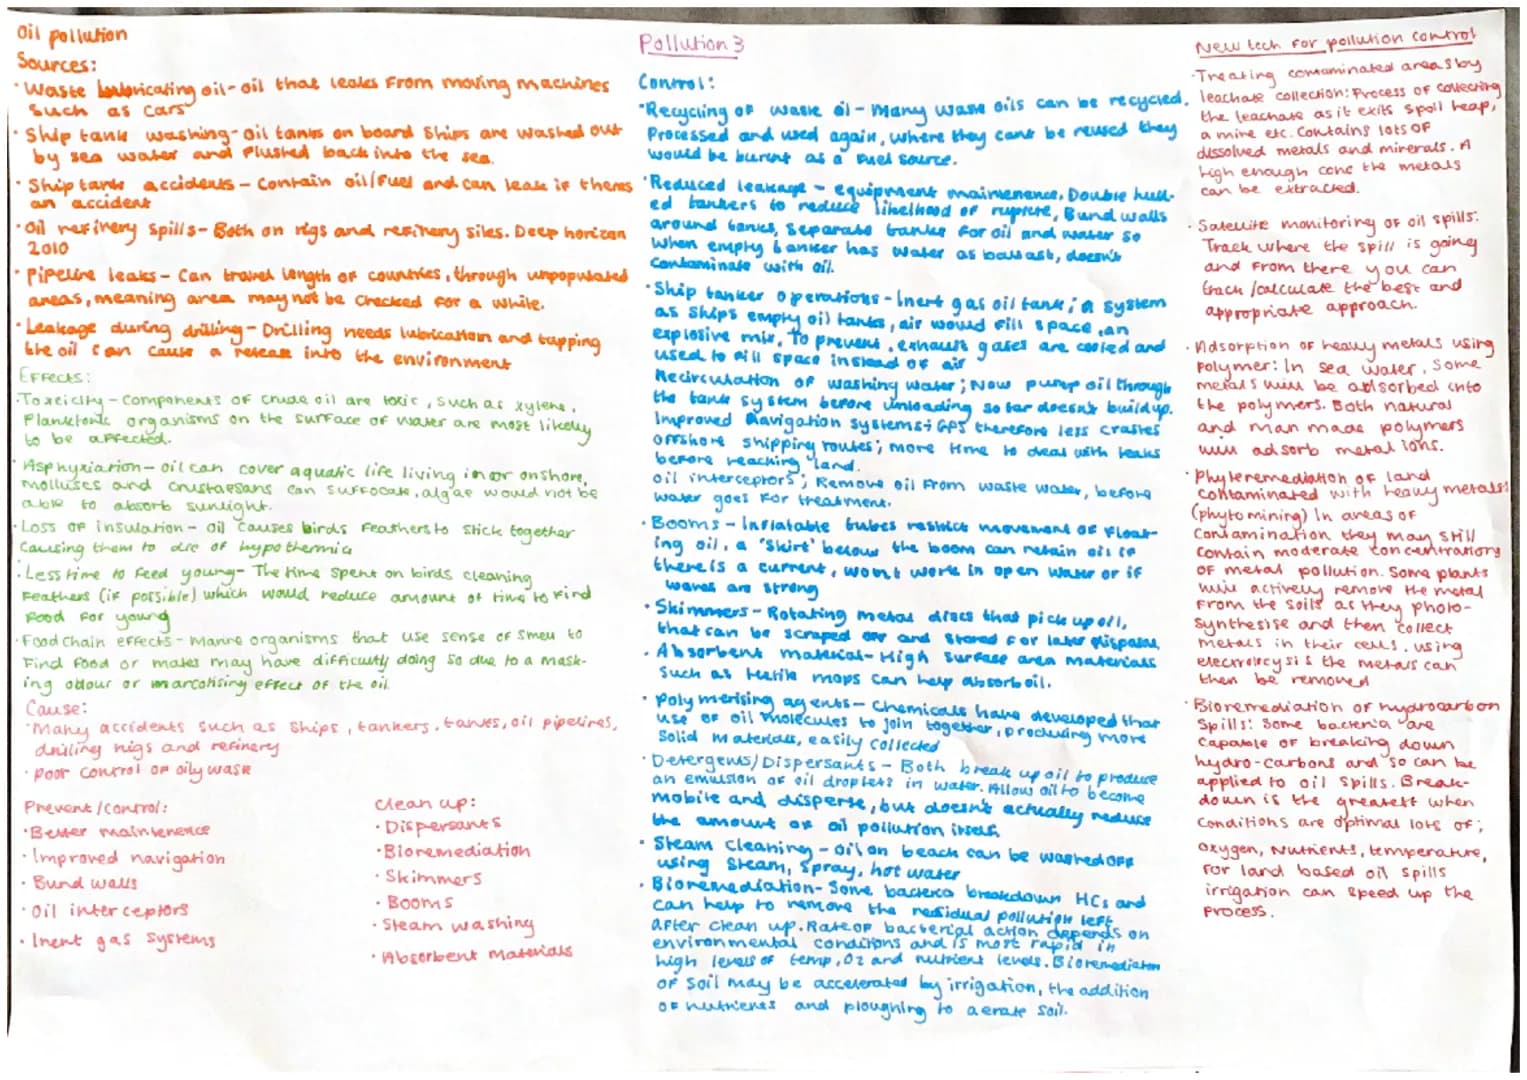 Oil pollution
Sources:
· Waste lubricating oil - oil that leaks from moving machines
such as cars
· Ship tank washing - oil tanks on board ships are washed out
by sea water and flushed back into the sea.
· Ship tank accidents - contain oil/fuel and can leak if theres
an accident
· Oil refinery spills - Both on rigs and refinery siles. Deep horizon
2010
· Pipeline leaks - Can travel length of countries, through unpopulated
areas, meaning area may not be checked for a while.
· Leakage during drilling - Drilling needs lubrication and tapping
the oil can cause a release into the environment
Effects:
· Toxicity - components of crude oil are toxic, such as xylene.
Planktonic organisms on the surface of water are most likely
to be affected.
· Asphyxiation - oil can cover aquatic life living in or onshore,
molluscs and crustaesans can suffocate, algae would not be
able to absorb sunlight.
· Loss of insulation - oil causes birds feathers to stick together
causing them to die of hypothermia
· Less time to feed young - The time spent on birds cleaning
feathers (if possible) which would reduce amount of time to find
food for young
· Food chain effects - Manre organisms that use sense of smell to
find food or mates may have difficulty doing so due to a mask-
ing odour or marcotising effect of the oil
Cause:
· Many accidents such as ships, tankers, tanks, oil pipelines,
drilling rigs and refinery
· poor control of oily wask
Prevent/control:
· Better maintenence
· Improved navigation
· Bund walls
· Oil interceptors
· Inert gas systems
clean up:
· Dispersants
· Bioremediation
· Skimmers
· Booms
· Steam washing
· Absorbent materials
Pollution 3
Control:
· Recycling of waste oil - Many waste oils can be recycled.
Processed and used again, where they cant be reused they
would be burent as a fuel source.
· Reduced leakage - equipment mainenence, Double hull-
ed tankers to reduce likelhood of rupture, Bund walls
around tanks, separate tanks for oil and water so
when empty tanker has water as ballast, doesn't
contaminate with oil.
· Ship tanker operations - Inert gas oil tank; a system
as ships empty oil tanks, air would fill space, an
explosive mix. To prevent, exhaust gases are cooled and
used to fill space instead of air
Recirculation of washing water; Now pump oil through
the tank system before unloading so tar doesn't build up.
Improved Navigation systems; GPS therefore less crashes
offshore shipping routes; more time to deal with leaks
before reaching land.
oil interceptors; Remove oil from waste water, before
water goes for treatment.
· Booms - Inflatable tubes restrict movement of float-
ing oil, a 'skirt' below the boom can retain oil if
there is a current, won't work in open water or if
waves are strong
· Skimmers - Rotating metal discs that pick up oil,
that can be scraped off and stored for later disposal.
· Absorbent material - High surface area materials
such as textile mops can help absorb oil.
· polymerising agents - Chemicals have developed that
use of oil molecules to join together, producing more
solid materials, easily collected
· Detergents/Dispersants - Both break up oil to produce
an emulsion of oil droplets in water. Allow oil to become
mobile and disperse, but doesn't actually reduce
the amount of oil pollution itself.
· Steam cleaning - oil on beach can be washed off
using steam, spray, hot water
· Bioremediation - Some bacteria breakdown HCs and
can help to remove the residual pollution left
after clean up. Rate of bacterial action depends on
environmental conditions and is most rapid in
high levels of temp, O2 and nutrient levels. Bioremediation
of soil may be accelerated by irrigation, the addition
of nutrients and ploughing to aerate soil.
New tech for pollution control
· Treating contaminated areas by
leachate collection: Process of collecting
the leachate as it exits spoil heap,
a mine etc. Contains lots of
dissolved metals and minerals. A
high enough conc the metals
can be extracted.
· Satellite monitoring of oil spills:
Track where the spill is going
and from there you can
track/calculate the best and
appropriate approach.
· Adsorption of heavy metals using
polymer: In sea water, some
metals will be adsorbed into
the polymers. Both natural
and man made polymers
will adsorb metal ions.
· Phyteremediation of land
contaminated with heavy metals
(phytomining) In areas of
contamination they may still
contain moderate concentrations
of metal pollution. Some plants
will actively remove the metal
from the soils as they photo-
synthesise and then collect
metals in their cells. using
electrolysis the metals can
then be removed
· Bioremediation of hydrocarbon
spills: Some bacteria are
capable of breaking down
hydro-carbons and so can be
applied to oil spills. Break-
down is the greatest when
conditions are optimal lots of;
oxygen, nutrients, temperature,
for land based oil spills
irrigation can speed up the
process.